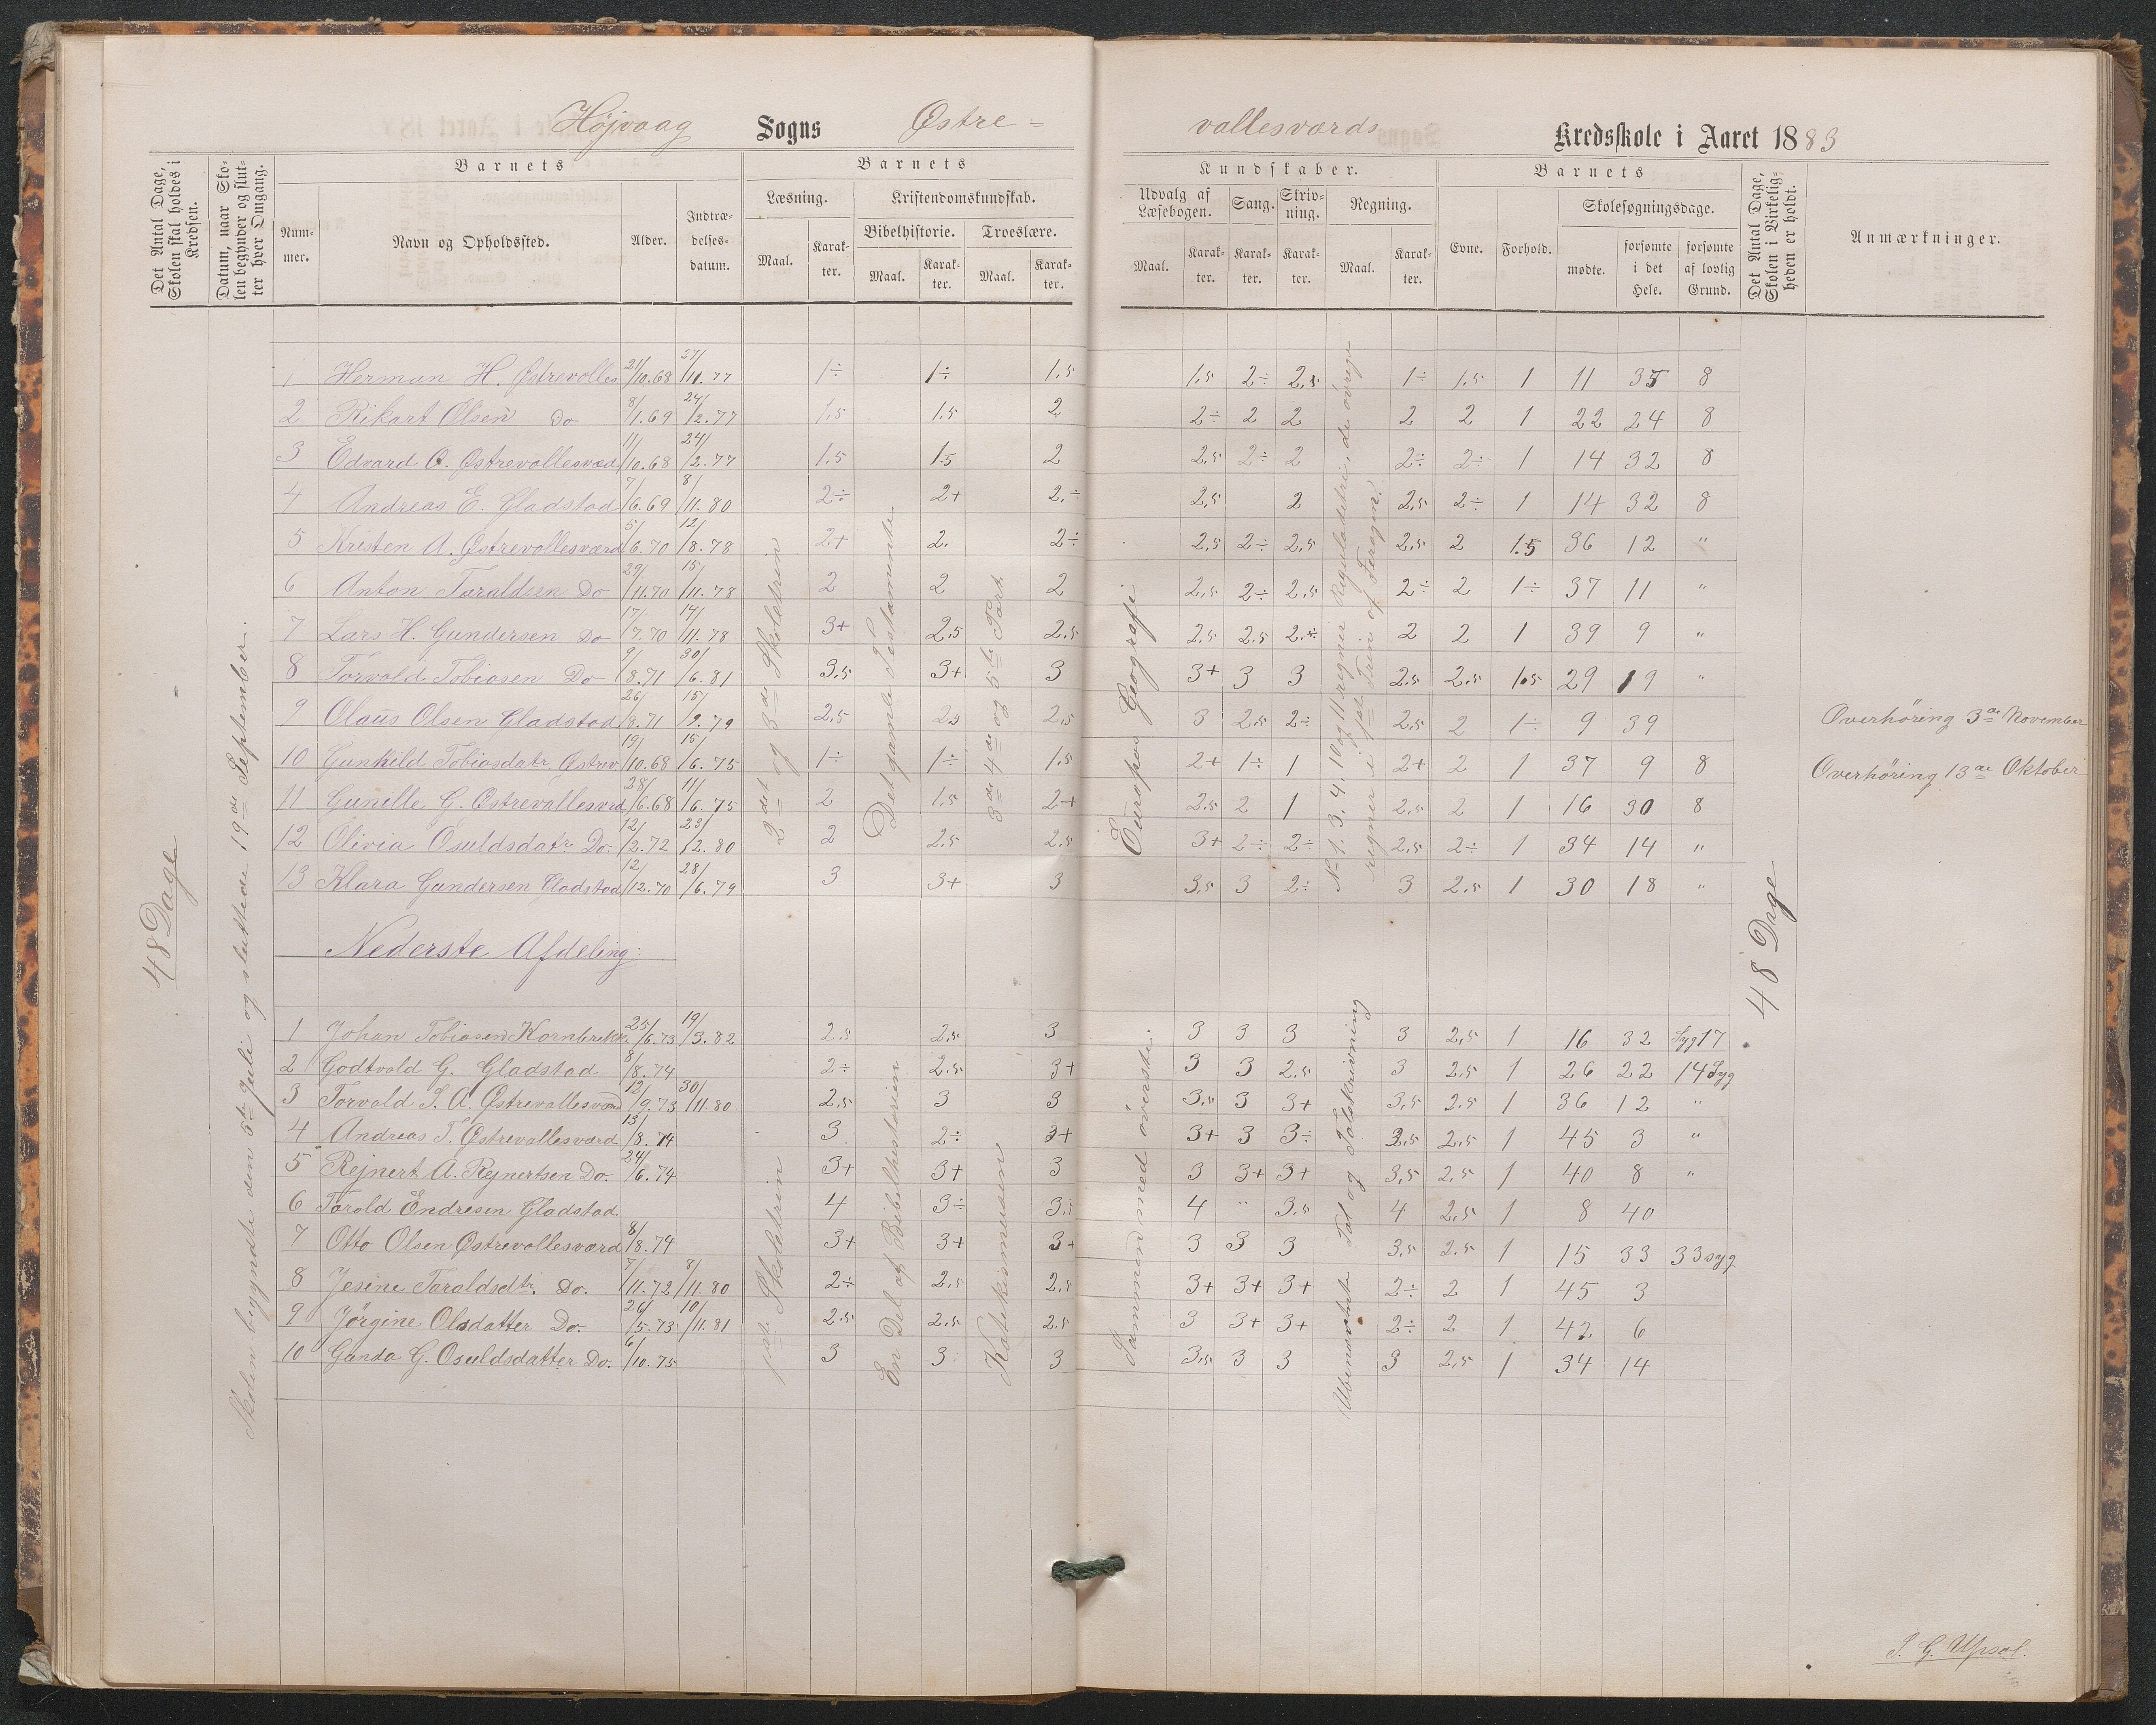 Højvaag Sogns Østre-vallesværds Kredsskole i Aaret 1883
Det Antal Dage, Skolen skal holdes i Kredsen.
Datum, naar Skolen begynder og slutter hver Omgang.
Barnets
Nummer.
Navn og Opholdssted.
Alder.
Indtrædelses-datum.
Barnets
Læsning.
Maal.
Karakter.
Kristendomskundskab.
Bibelhistorie.
Maal.
Karakter.
Troeslære.
Maal.
Karakter.
Kundskaber.
Udvalg af Læsebogen.
Maal.
Karakter.
Sang.
Karakter.
Skrivning.
Karakter.
Regning.
Maal.
Karakter.
Barnets
Evne.
Forhold.
Skolesøgningsdage.
mødte.
forsømte i det Hele.
forsømte af lovlig Grund.
Det Antal Dage, Skolen i Virkeligheden er holdt.
Anmærkninger.
48 Dage
Skolen begyndte den 5te Juli og sluttede 19de September.
2det og 3de Skoletrin
Det gamle Testamente
3de 4de og 5te Part
Europas Geografi
No 1. 3. 4. 10 og 11 regner Reguladetri, de øvrige regner i 1ste Trin af
48 Dage
1 Herman H. Østrevalles 21/10.68 /11.77 1÷ 1÷ 1,5 1,5 2÷ 2,5 1÷ 1,5 1 11 35 8
2 Rikart Olsen Do 8/1.69 24/2.77 1,5 1.5 2 2÷ 2 2 2 2 1 22 24 8
3 Edvard O. Østrevallesværd 11/10.68 24/2.77 1.5 1.5 2 2,5 2÷ 2 2÷ 2÷ 1 14 32 8
4 Andreas E. Gladstad 7/6.69 8/11.80 2÷ 2+ 2.÷ 2,5 2 2,5 2÷ 1 14 32 8
5 Kristen A. Østrevallesværd 5/6.70 12/8.78 2+ 2. 2÷ 2,5 2÷ 2,5 2,5 2 1.5 36 12 "
6 Anton Taraldsen Do 29/11.70 15/11.78 2 2 2 2,5 2÷ 2,5 2÷ 2 1÷ 37 11 "
7 Lars H. Gundersen Do 17/7.70 14/11.78 3+ 2,5 2.5 2.5 2.5 2.÷ 2 2 1 39 9 "
8 Torvald Tobiasen Do 9/8.71 30/6.81 3,5 3+ 3 3+ 3 3 2,5 2,5 1.5 29 19 "
9 Olaus Olsen Gladstad 26/8.71 15/2.79 2,5 2,5 2,5 3 2,5 2÷ 2,5 2 1÷ 9 39 Overhøring 3de November
10 Gunhild Tobiasdatr Østrev 19/10.68 15/6.75 1÷ 1÷ 1,5 2+ 1÷ 1 2+ 2 1 37 9 8 Overhøring 13de Oktober
11 Gunille G. Østrevallesvrd 28/6.68 11/6.75 2 1,5 2+ 2,5 2 1 2,5 2 1 16 30 8
12 Olivia Osuldsdatr Do. 12/2.72 23/2.80 2 2.5 2.5 3+ 2÷ 2÷ 2,5 2÷ 1 34 14 "
13 Klara Gundersen Gladstad 12/12.70 28/6.79 3 3+ 3 3,5 3 2÷ 3 2,5 1 30 18 "
Nederste Afdeling:
1ste Skoletrin
En Del af Bibelhistorien
Katekismusen
Sammen med överste.
Tal og Talskrivning
1 Johan Tobiasen Kornbrekke 25/6.73 19/3.82 2.5 2,5 3 3 3 3 3 2,5 1 16 32 Syg 17
2 Godtvald G. Gladstad 8/8.74 2÷ 2.5 3+ 3 3 2.5 3 2,5 1 26 22 14 Syg
3 Torvald T. A. Østrevallesværd 12/9.73 30/11.80 2,5 3 3 3,5 3 3+ 3,5 2,5 1 36 12 "
4 Andreas T. Østrevallesværd 13/8.74 3 2÷ 3+ 3+ 3 3÷ 3,5 2,5 1 45 3 "
5 Rejnert A. Rejnertsen Do. 24/6.74 3+ 3+ 3 3 3+ 3+ 3,5 2,5 1 40 8 "
6 Tarald Endresen Gladstad 4 3÷ 3,5 4 " 3,5 4 2,5 1 8 40
7 Otto Olsen Østrevallesværd 8/8.74 3+ 3+ 3+ 3 3 3 3,5 2.5 1 15 33 33 syg
8 Jesine Taraldsdtr. Do. 7/11.72 8/11.80 2÷ 2,5 2,5 3+ 3+ 3+ 2÷ 2 1 45 3
9 Jørgine Olsdatter Do. 26/5.73 10/11.81 2.5 2,5 2.5 3 3+ 3+ 2÷ 2 1 42 6
10 Ganda G. Osuldsdatter Do. 6/10.75 3 3 3 3,5 3 3 3 2,5 1 34 14
T. G. Upsal.